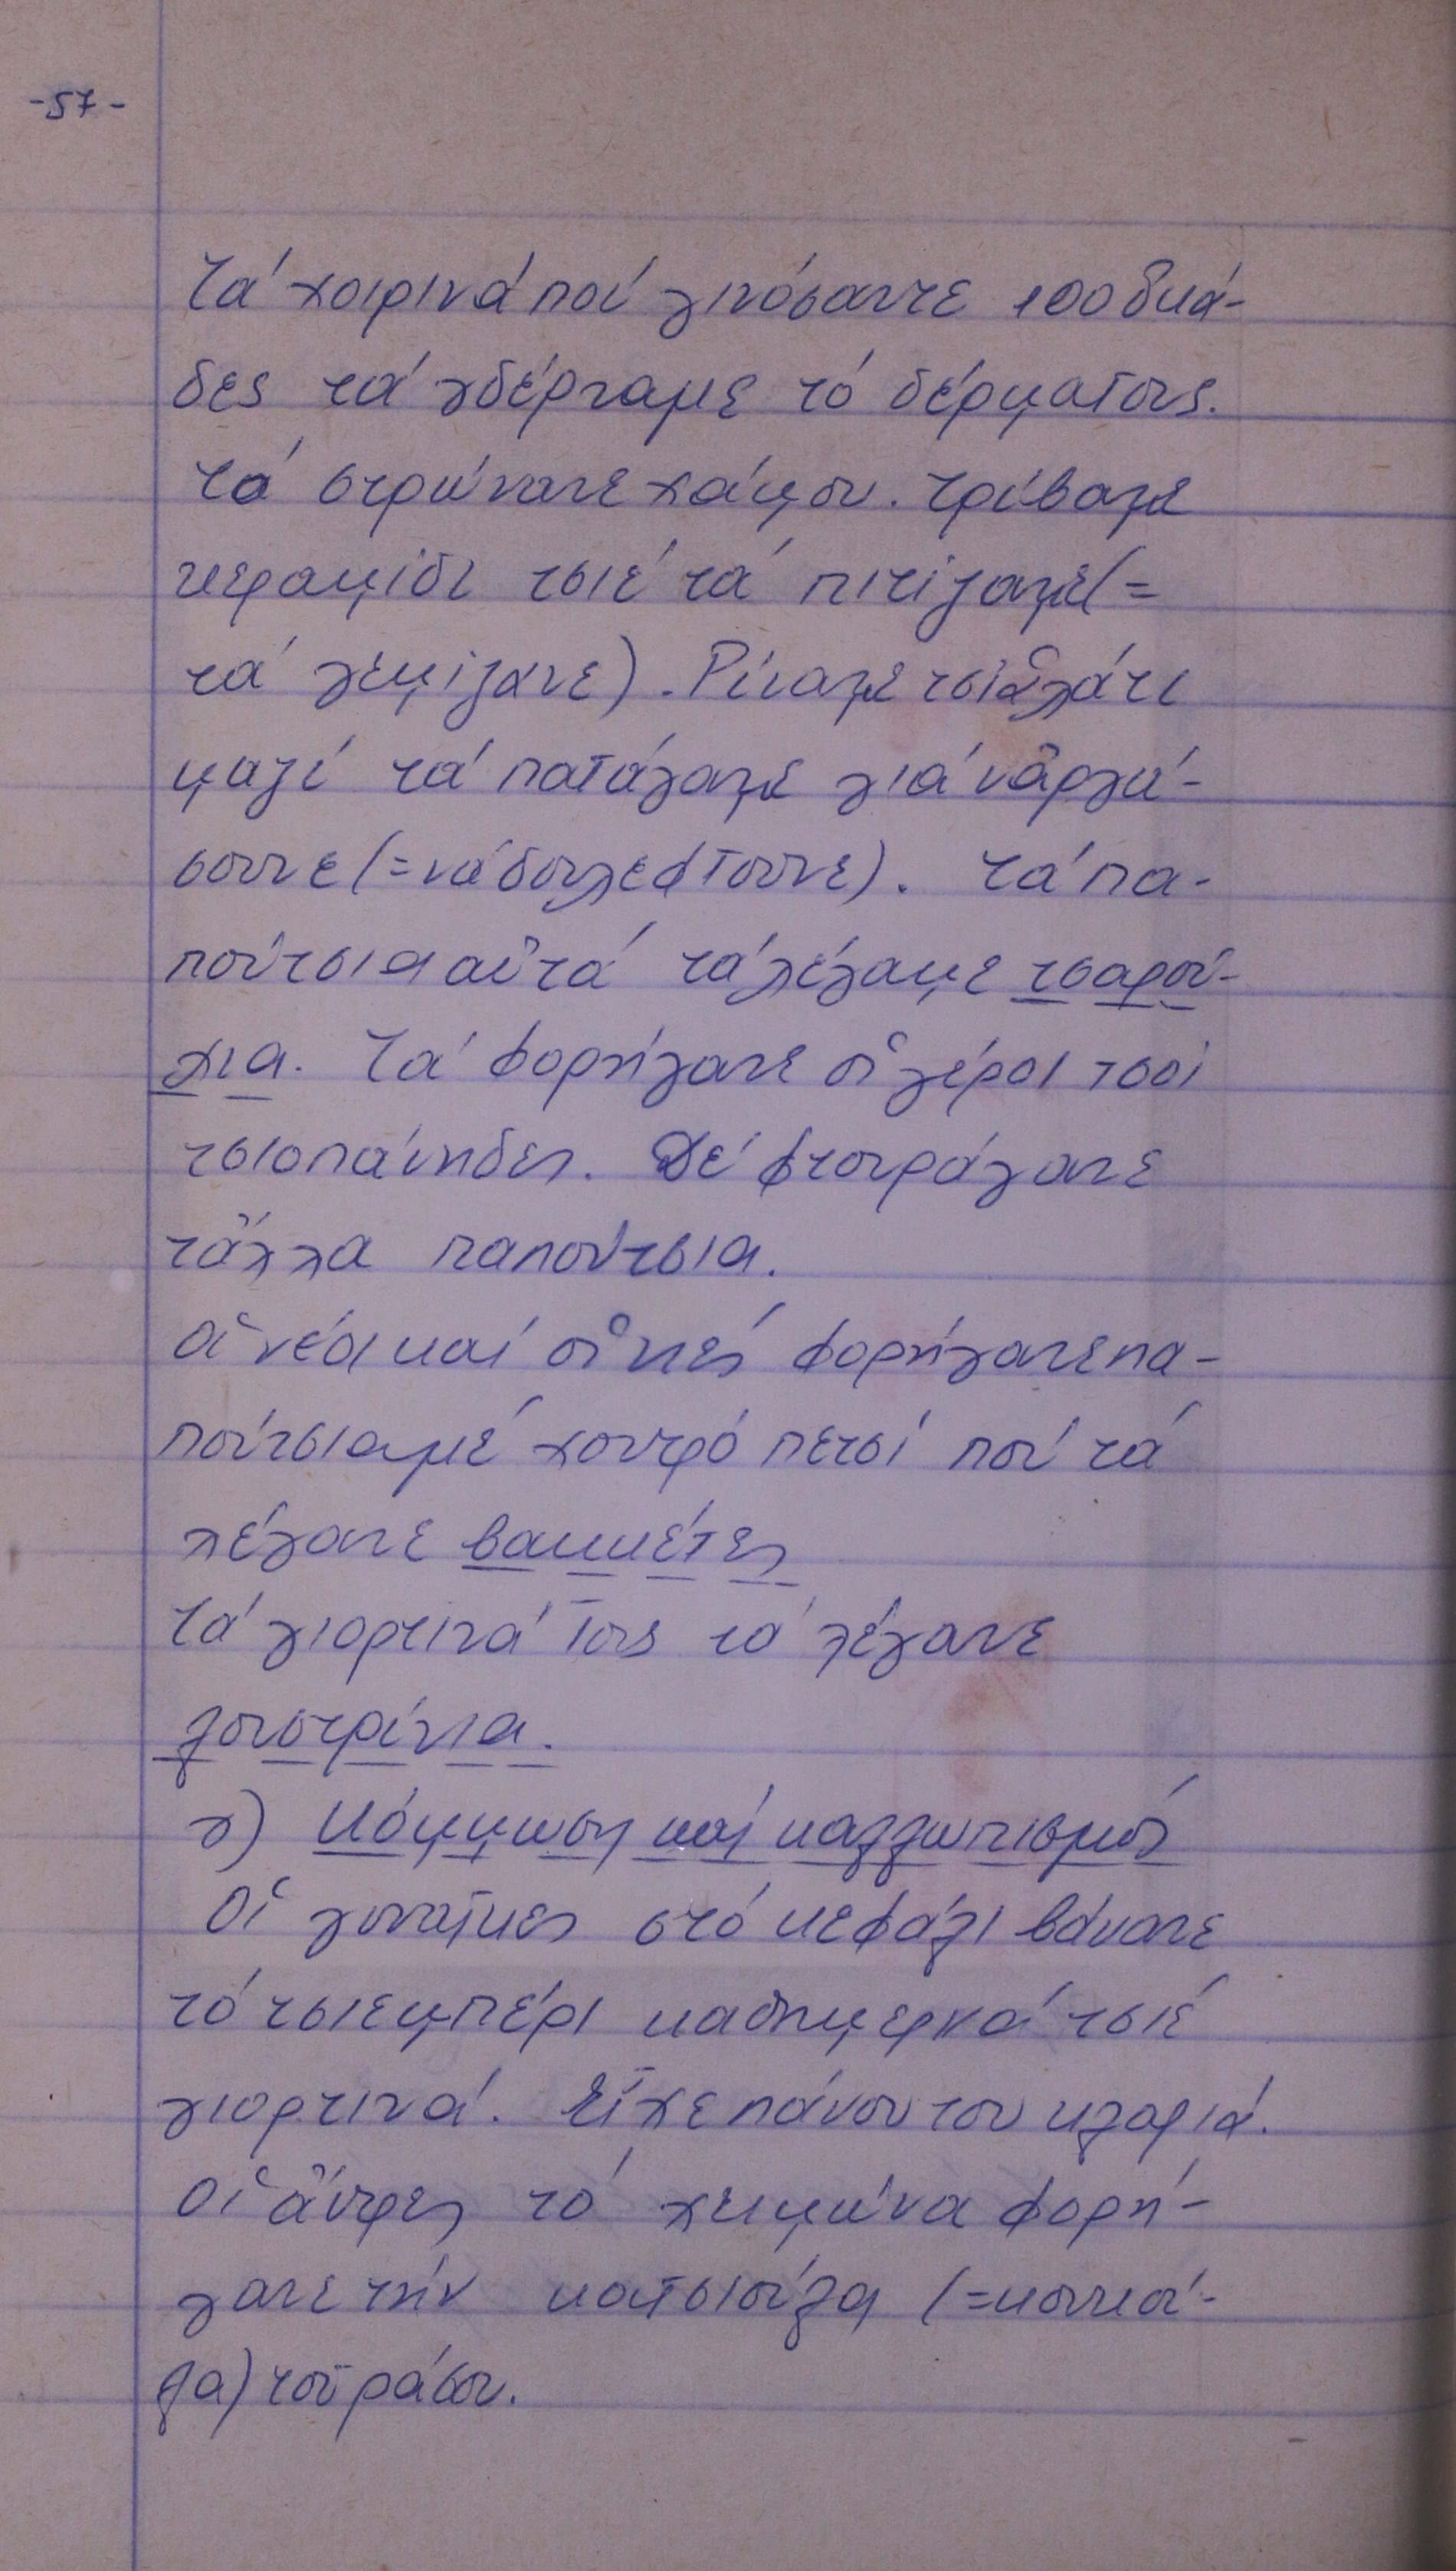 -57-
Τά χοιρινά πού γινόσαντε 100 ὀκά-
δες τά γδέρναμε τό δέρμα τους.
Τά στρώνανε χάμου. Τρίβαμε
κεραμίδι τσιέ τά πιτίζαμε (=
τά γεμίζανε). Ρίναμε τσι ἁλάτι
μαζί τά πατάγαμε γιά νἀργά-
σουνε (= νά δουλεφτοῦνε). Τά πα-
πούτσια αὐτά τά λέγαμε τσαρού-
χια. Τά φορήγανε οἱ γέροι τσοί
τσιοπάνηδες. Δέ φτουράγανε
τἄλλα παπούτσια.
Οἱ νέοι καί οἱ νιές φορήγανε πα-
πούτσια μέ χοντρό πετσί πού τά
λέγανε βακκέτες
Τά γιορτινά τους τά λέγανε
λουστρίνια.
γ) Κόμμωση καί καλλωπισμός
Οἱ γυναῖκες στό κεφάλι βάνανε
τό τσιεμπέρι καθημερνά τσιέ
γιορτινά. Εἶχε πάνου του κλαριά.
Οἱ ἄντρες τό χειμώνα φορή-
γανε τήν κατσιούλα (=κουκού-
λα) τοῦ ράσου.